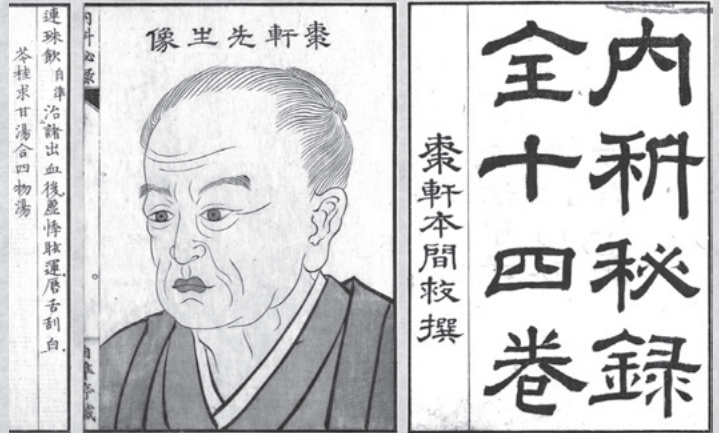 内科秘録
全十四巻
棗軒本間救撰
棗軒先生像
内科秘録
自準亭蔵
連珠飲 自準 治諸出血後虚悸眩運唇舌刮白
苓桂朮甘湯合四物湯